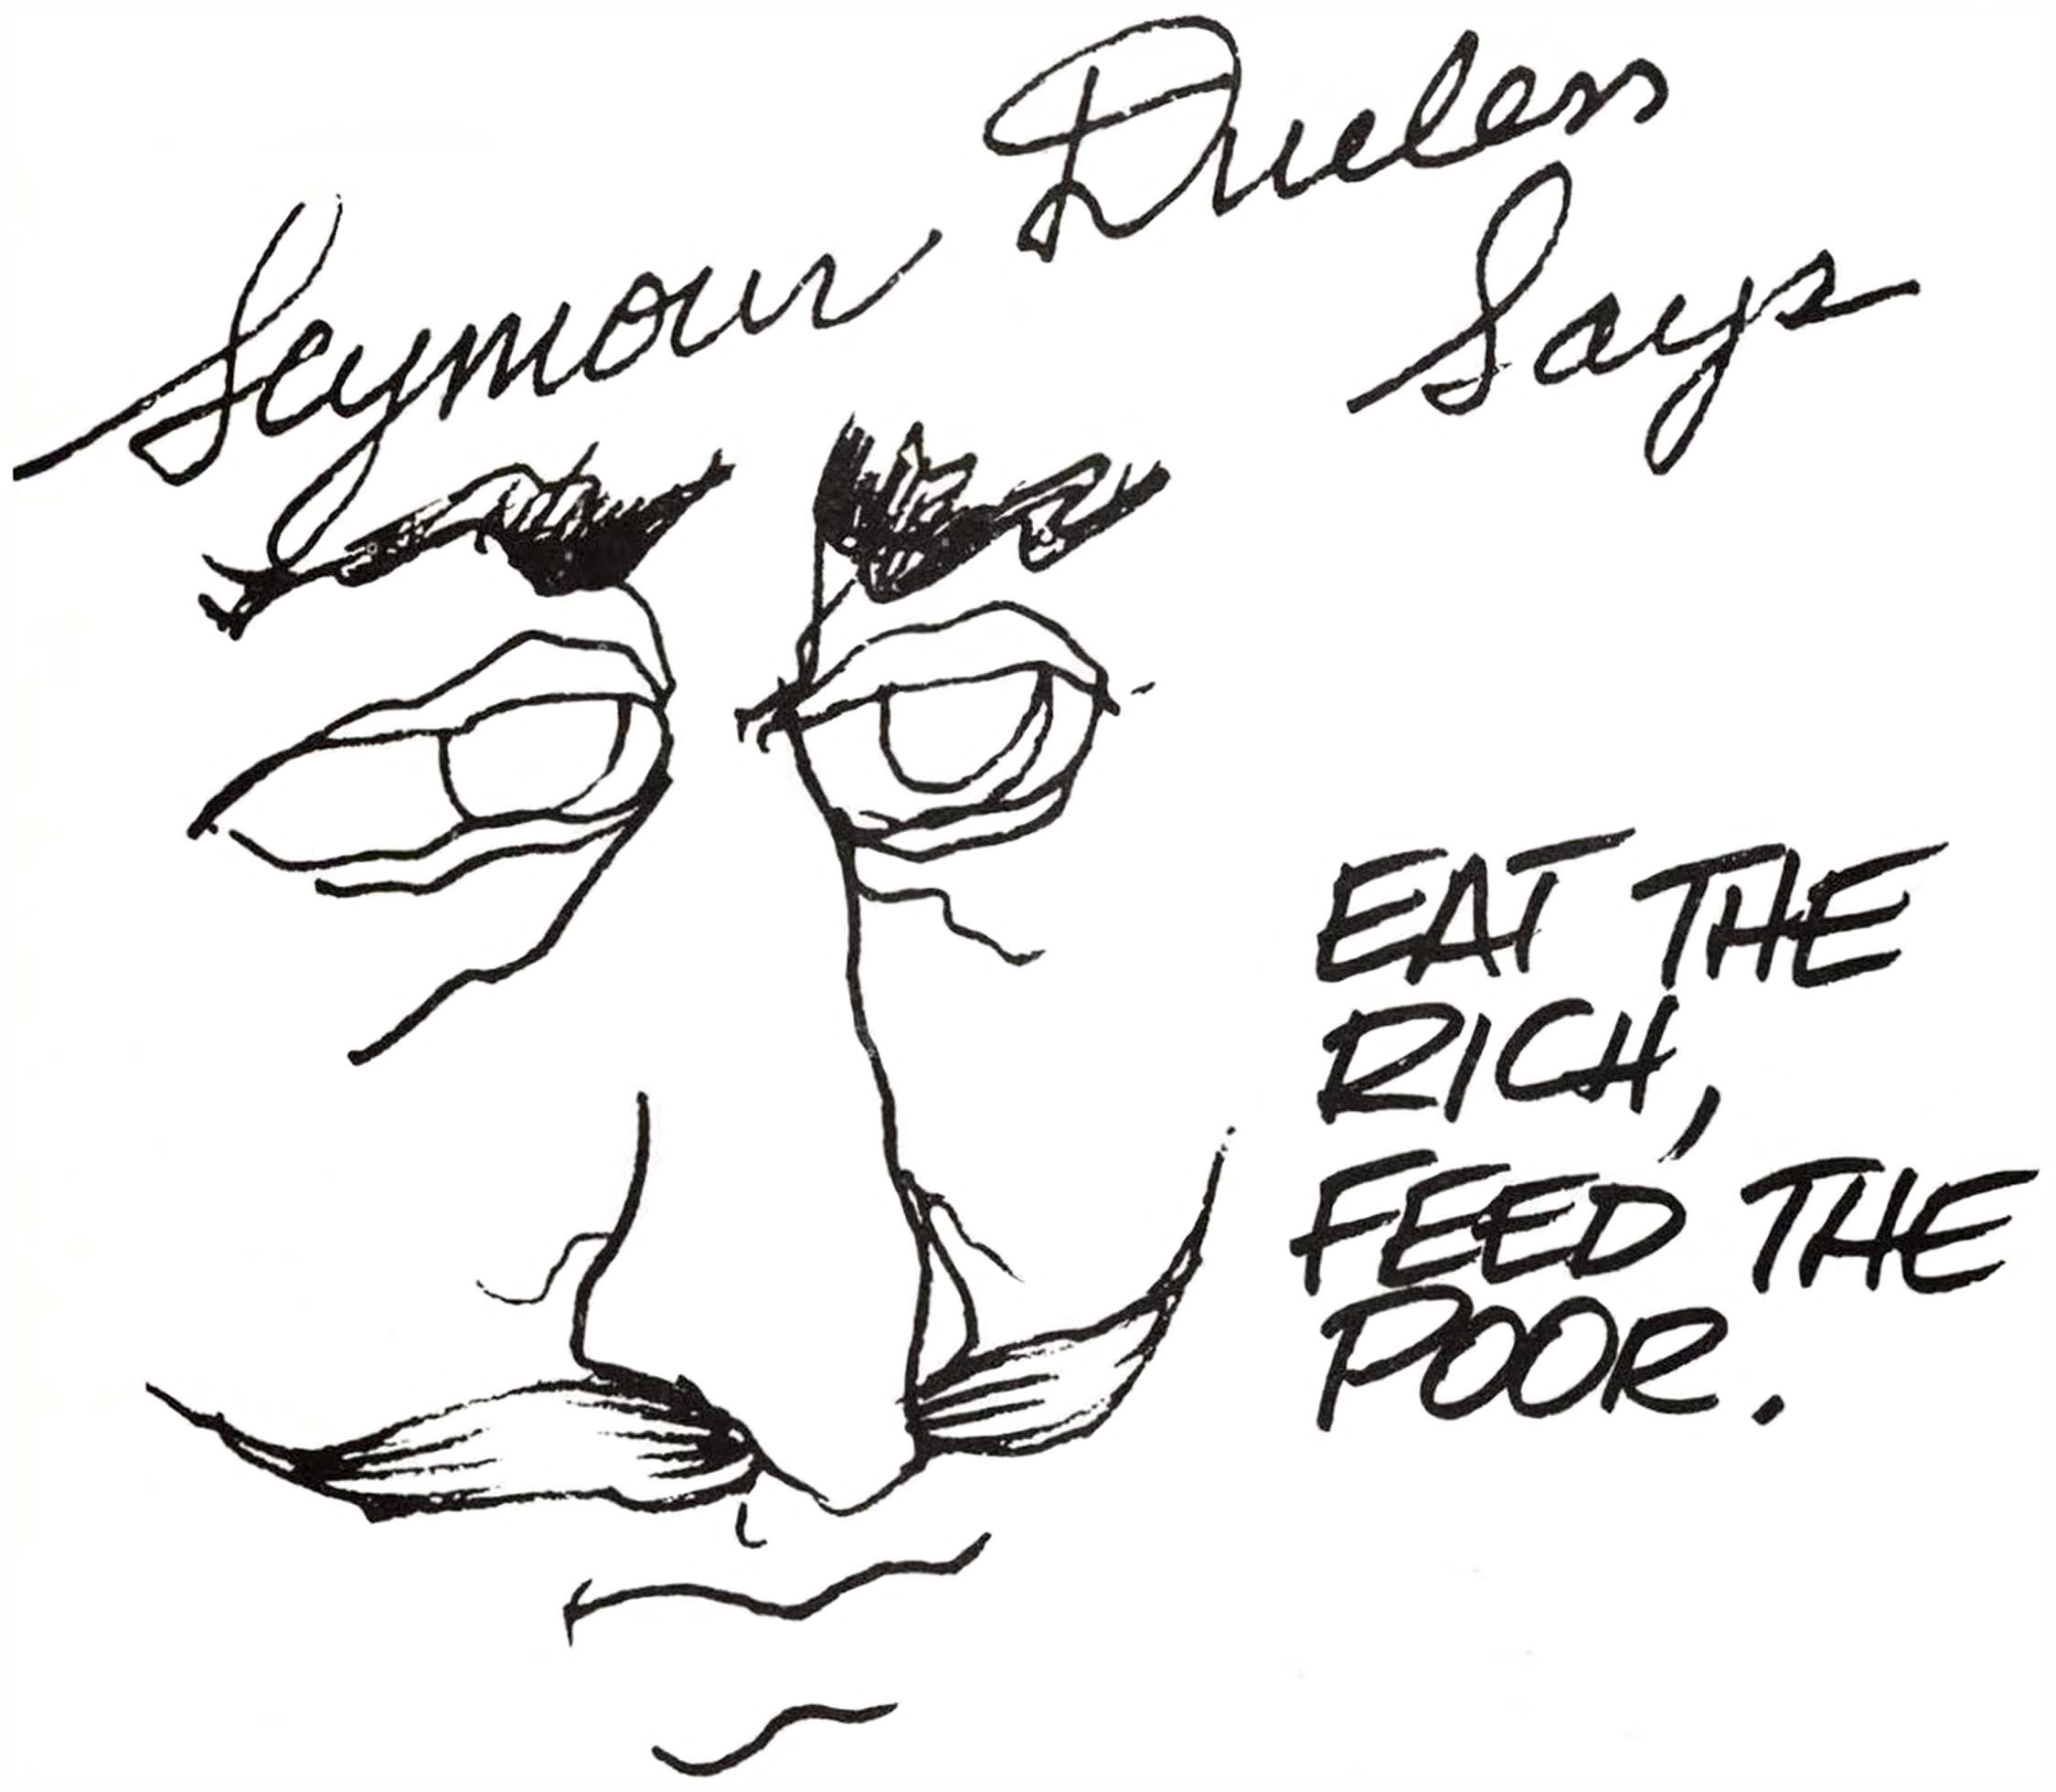 Seymour Dueless
Says
EAT THE
RICH,
FEED THE
POOR.